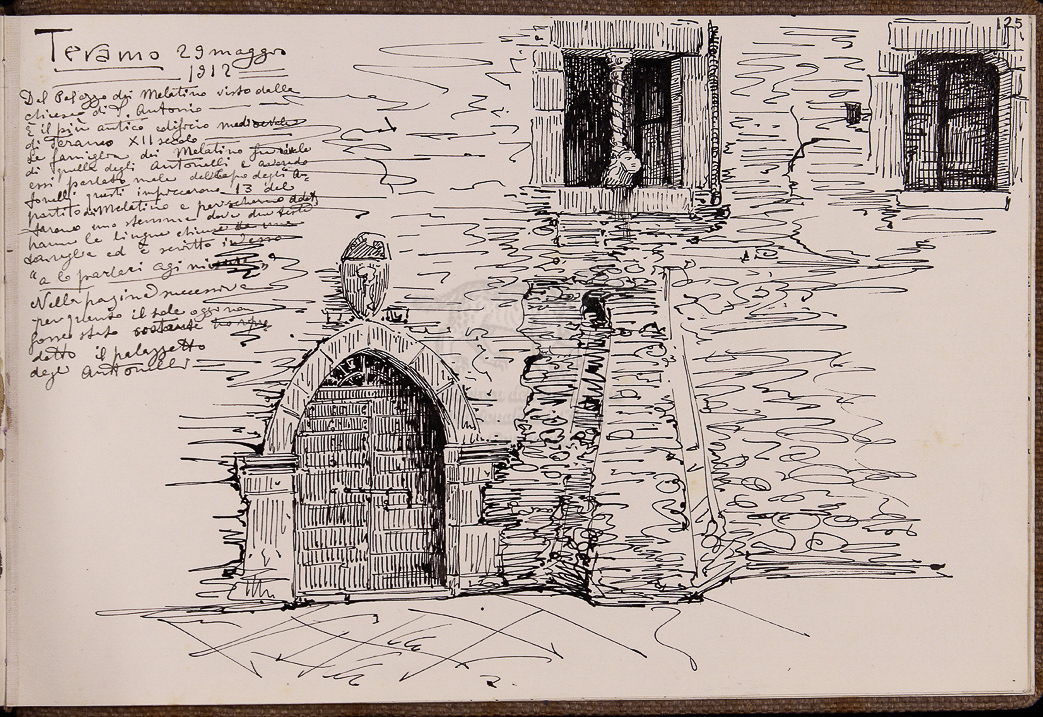 125
Teramo 29 maggio
1912
Del Palazzo dei Melatino visto dalla
chiesa di S. Antonio
È il più antico edificio medioevale
di Teramo XII secolo
La famiglia dei Melatino
di quella degli Antonelli e avendo
essi parlato male del capo degli An-
tonelli questi impiccarono 13 del
partito di Melatino e per scherno
uno stemma dove due teste
hanno le lingue chiuse da una
tanaglia ed è scritto in esso
"a lo parlari agi
Nella pagina successiva
per quanto il sole oggi non
fosse stato costante ho
detto il palazzetto
degli Antonelli